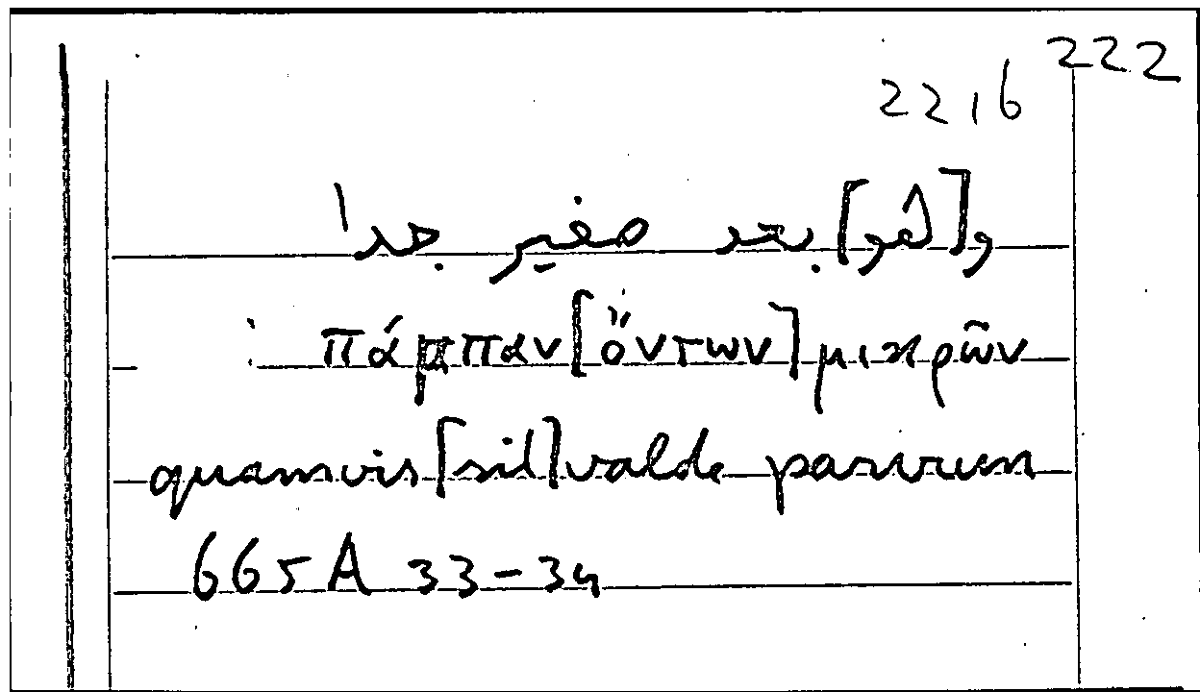 222
22,6
و[هو] بعد صغير جدا
πάμπαν [ὄντων] μικρῶν
quamvis [sit] valde parvum
665 A 33-34